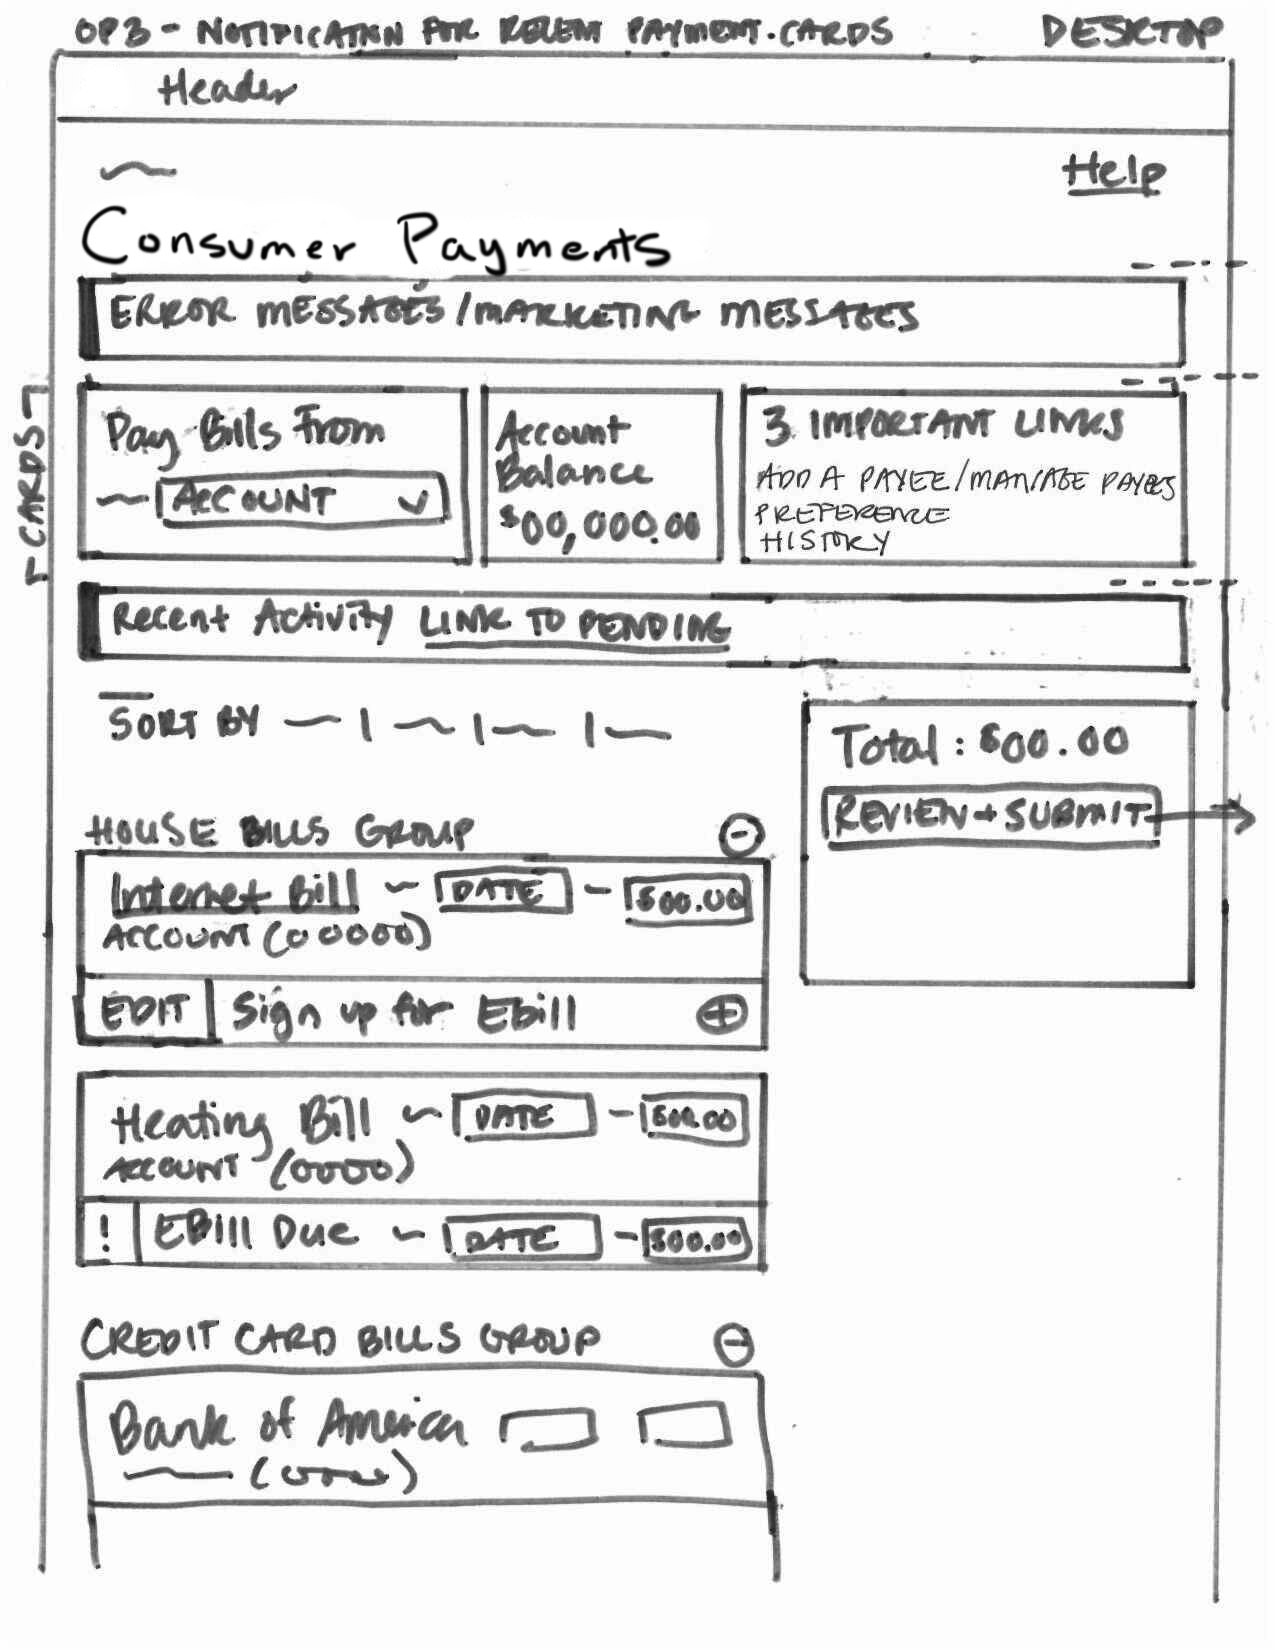 OP3 - NOTIFICATION FOR RECENT PAYMENT. CARDS DESKTOP
Header
Help
Consumer Payments
ERROR MESSAGES / MARKETING MESSAGES
CARDS
Pay Bills From
ACCOUNT
Account
Balance
$00,000.00
3 IMPORTANT LINKS
ADD A PAYEE/MANAGE PAYEES
PREFERENCE
HISTORY
Recent Activity LINK TO PENDING
SORT BY
Total: $00.00
REVIEW + SUBMIT
HOUSE BILLS GROUP
Internet Bill DATE $00.00
ACCOUNT (00000)
EDIT Sign up for Ebill
Heating Bill DATE $00.00
ACCOUNT (0000)
! EBill Due DATE $00.00
CREDIT CARD BILLS GROUP
Bank of America